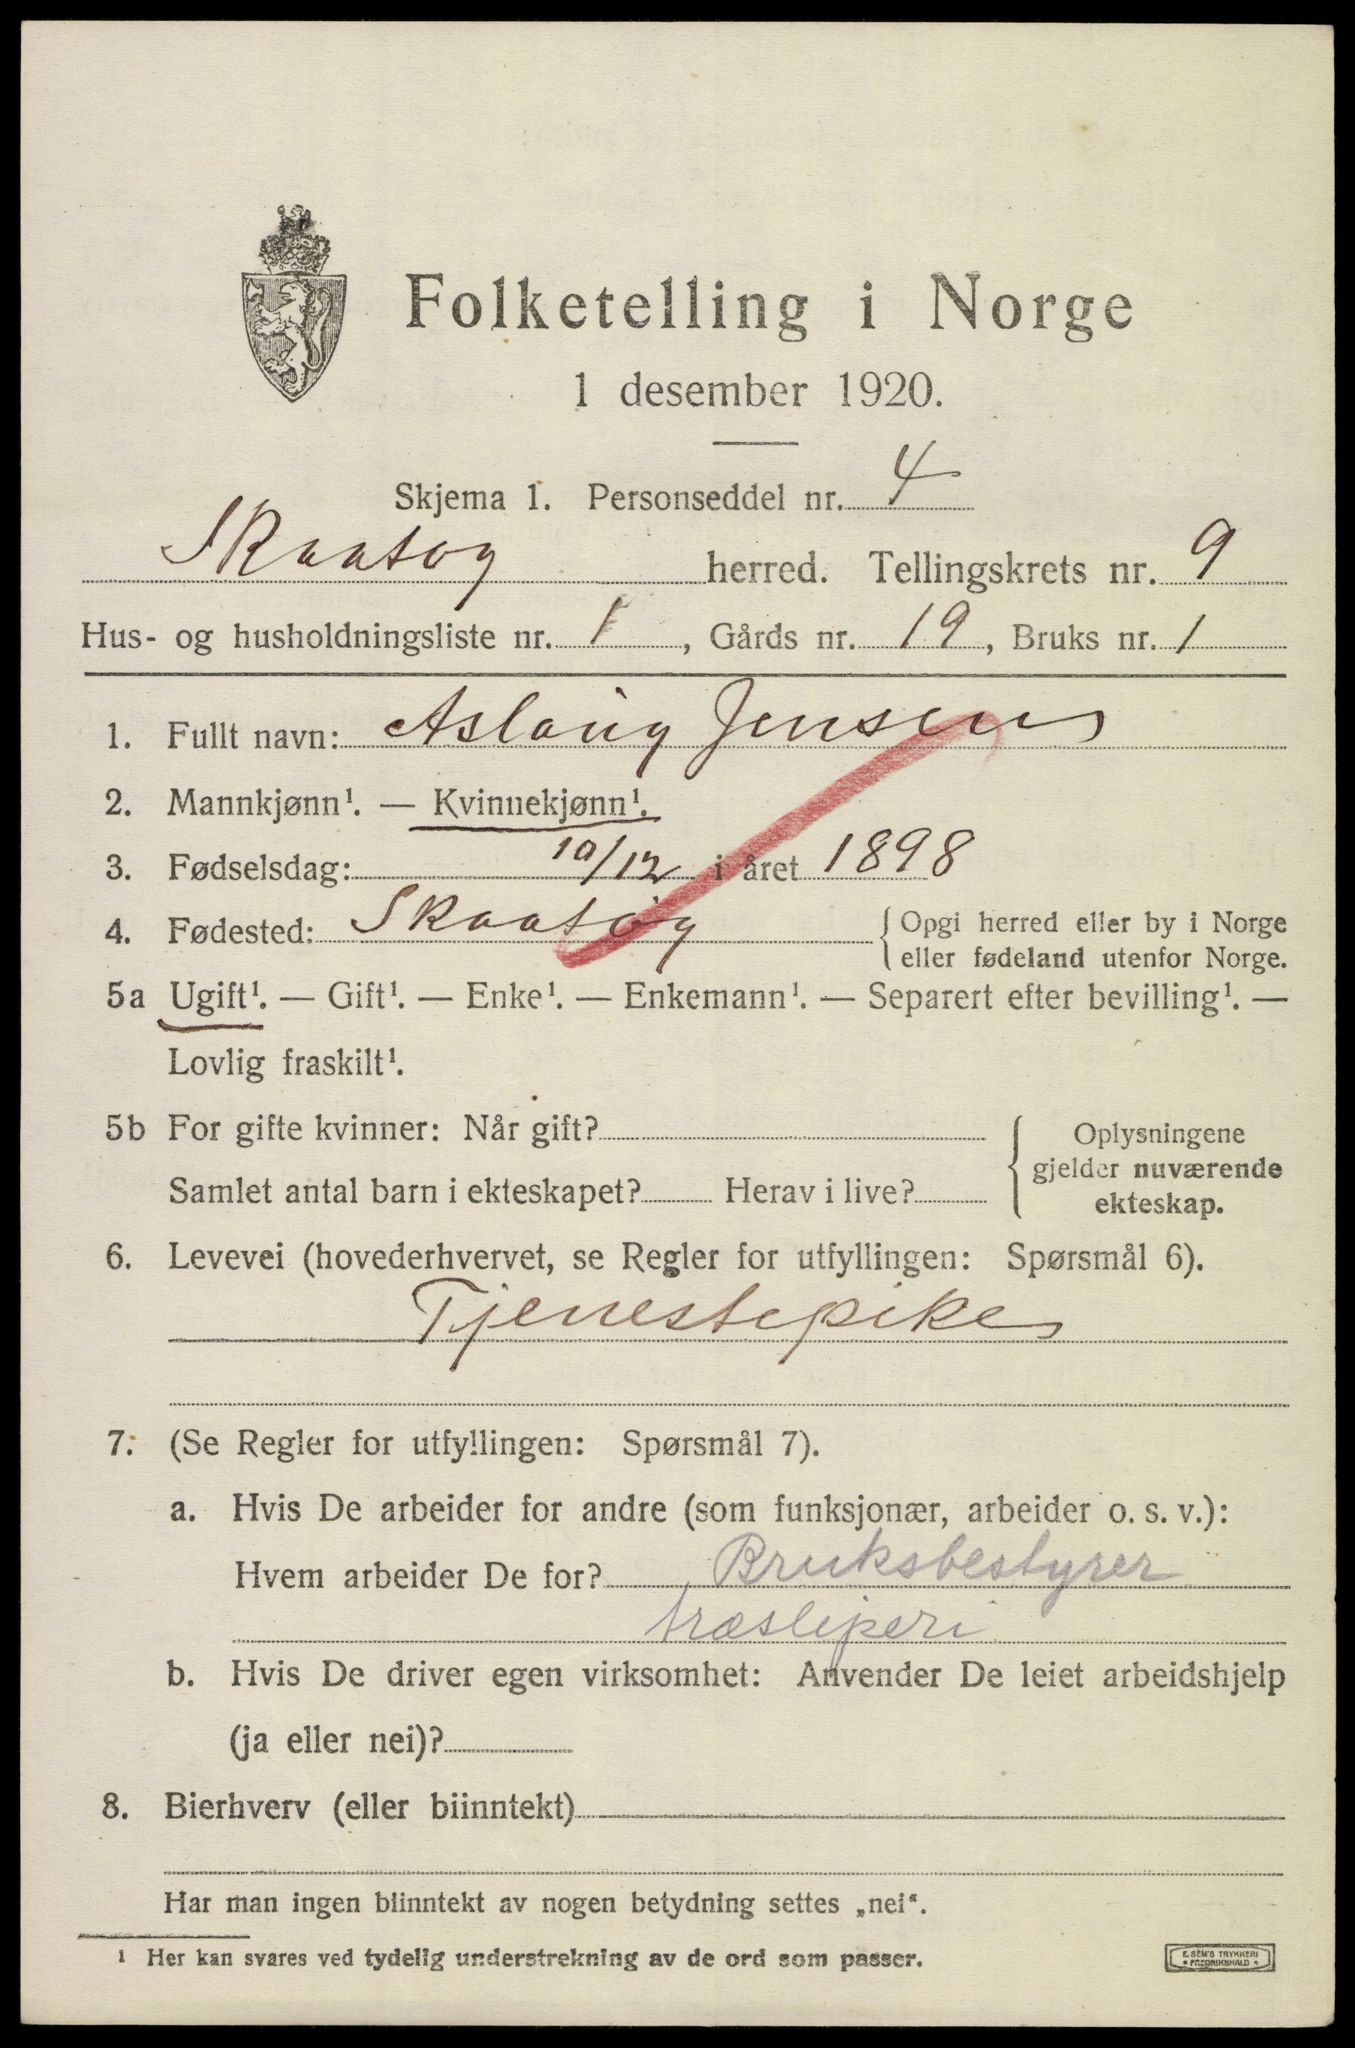 Folketelling i Norge
1 desember 1920.
Skjema 1. Personseddel nr. 4
Skaatøy herred. Tellingskrets nr. 9
Hus- og husholdningsliste nr. 1, Gårds nr. 19, Bruks nr. 1
1. Fullt navn: Aslaug Jensen
2. Mannkjønn¹. — Kvinnekjønn¹.
3. Fødselsdag: 10/12 i året 1898
4. Fødested: Skaatøy {Opgi herred eller by i Norge
eller fødeland utenfor Norge.
5a Ugift¹. — Gift¹. — Enke¹. — Enkemann¹. — Separert efter bevilling¹. —
Lovlig fraskilt¹.
5b For gifte kvinner: Når gift?
Samlet antal barn i ekteskapet? Herav i live?
Oplysningene
gjelder nuværende
ekteskap.
6. Levevei (hovederhvervet, se Regler for utfyllingen: Spørsmål 6).
Tjenestepike
7. (Se Regler for utfyllingen: Spørsmål 7).
a. Hvis De arbeider for andre (som funksjonær, arbeider o. s. v.):
Hvem arbeider De for? Bruksbestyrer
træsliperi
b. Hvis De driver egen virksomhet: Anvender De leiet arbeidshjelp
(ja eller nei)?
8. Bierhverv (eller biinntekt)
Har man ingen biinntekt av nogen betydning settes „nei“.
¹ Her kan svares ved tydelig understrekning av de ord som passer.
E. SEM'S TRYKKERI
FREDRIKSHALD